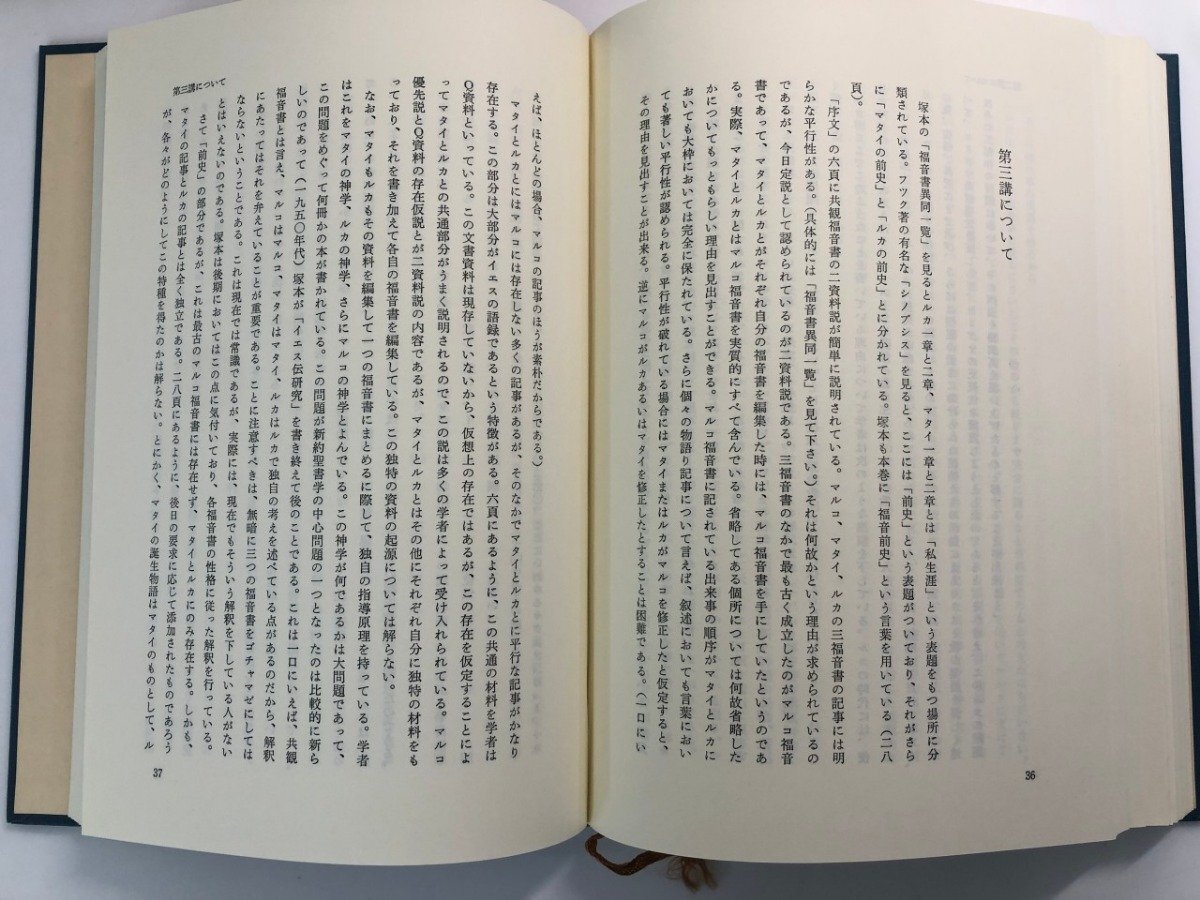 第三講について
塚本の「福音書異同一覧」を見るとルカ一章と二章、マタイ一章と二章とは「私生涯」という表題をもつ場所に分
類されている。フック著の有名な「シノプシス」を見ると、ここには「前史」という表題がついており、それがさら
に「マタイの前史」と「ルカの前史」とに分かれている。塚本も本巻に「福音前史」という言葉を用いている（二八
頁）。
「序文」の六頁に共観福音書の二資料説が簡単に説明されている。マルコ、マタイ、ルカの三福音書の記事には明
らかな平行性がある。（具体的には「福音書異同一覧」を見て下さい。）それは何故かという理由が求められているの
であるが、今日定説として認められているのが二資料説である。三福音書のなかで最も古く成立したのがマルコ福音
書であって、マタイとルカとがそれぞれ自分の福音書を編集した時には、マルコ福音書を手にしていたというのであ
る。実際、マタイとルカとはマルコ福音書を実質的にすべて含んでいる。省略してある個所については何故省略した
かについてもっともらしい理由を見出すことができる。マルコ福音書に記されている出来事の順序がマタイとルカに
おいても大枠においては完全に保たれている。さらに個々の物語り記事について言えば、叙述においても言葉におい
ても著しい平行性が認められる。平行性が破れている場合にはマタイまたはルカがマルコを修正したと仮定すると、
その理由を見出すことが出来る。逆にマルコがルカあるいはマタイを修正したとすることは困難である。（一口にい
36
えば、ほとんどの場合、マルコの記事のほうが素朴だからである。）
マタイとルカとにはマルコには存在しない多くの記事があるが、そのなかでマタイとルカとに平行な記事がかなり
存在する。この部分は大部分がイエスの語録であるという特徴がある。六頁にあるように、この共通の材料を学者は
Q資料といっている。この文書資料は現存していないから、仮想上の存在ではあるが、この存在を仮定することによ
ってマタイとルカとの共通部分がうまく説明されるので、この説は多くの学者によって受け入れられている。マルコ
優先説とQ資料の存在仮説とが二資料説の内容であるが、マタイとルカとはその他にそれぞれ自分に独特の材料をも
っており、それを書き加えて各自の福音書を編集している。この独特の資料の起源については解らない。
なお、マタイもルカもその資料を編集して一つの福音書にまとめるに際して、独自の指導原理を持っている。学者
はこれをマタイの神学、ルカの神学、さらにマルコの神学とよんでいる。この神学が何であるかは大問題であって、
この問題をめぐって何冊かの本が書かれている。この問題が新約聖書学の中心問題の一つとなったのは比較的に新ら
しいのであって（一九五〇年代）塚本が「イエス伝研究」を書き終えて後のことである。これは一口にいえば、共観
福音書とは言え、マルコはマルコ、マタイはマタイ、ルカはルカで独自の考えを述べている点があるのだから、解釈
にあたってはそれを弁えていることが重要である。ことに注意すべきは、無暗に三つの福音書をゴチャマゼにしては
ならないということである。これは現在では常識であるが、実際には、現在でもそういう解釈を下している人がない
とはいえないのである。塚本は後期においてはこの点に気付いており、各福音書の性格に従った解釈を行っている。
さて「前史」の部分であるが、これは最古のマルコ福音書には存在せず、マタイとルカにのみ存在する。しかも、
マタイの記事とルカの記事とは全く独立である。二八頁にあるように、後日の要求に応じて添加されたものであろう
が、各々がどのようにしてこの特種を得たのかは解らない。とにかく、マタイの誕生物語はマタイのものとして、ル
第三講について
37